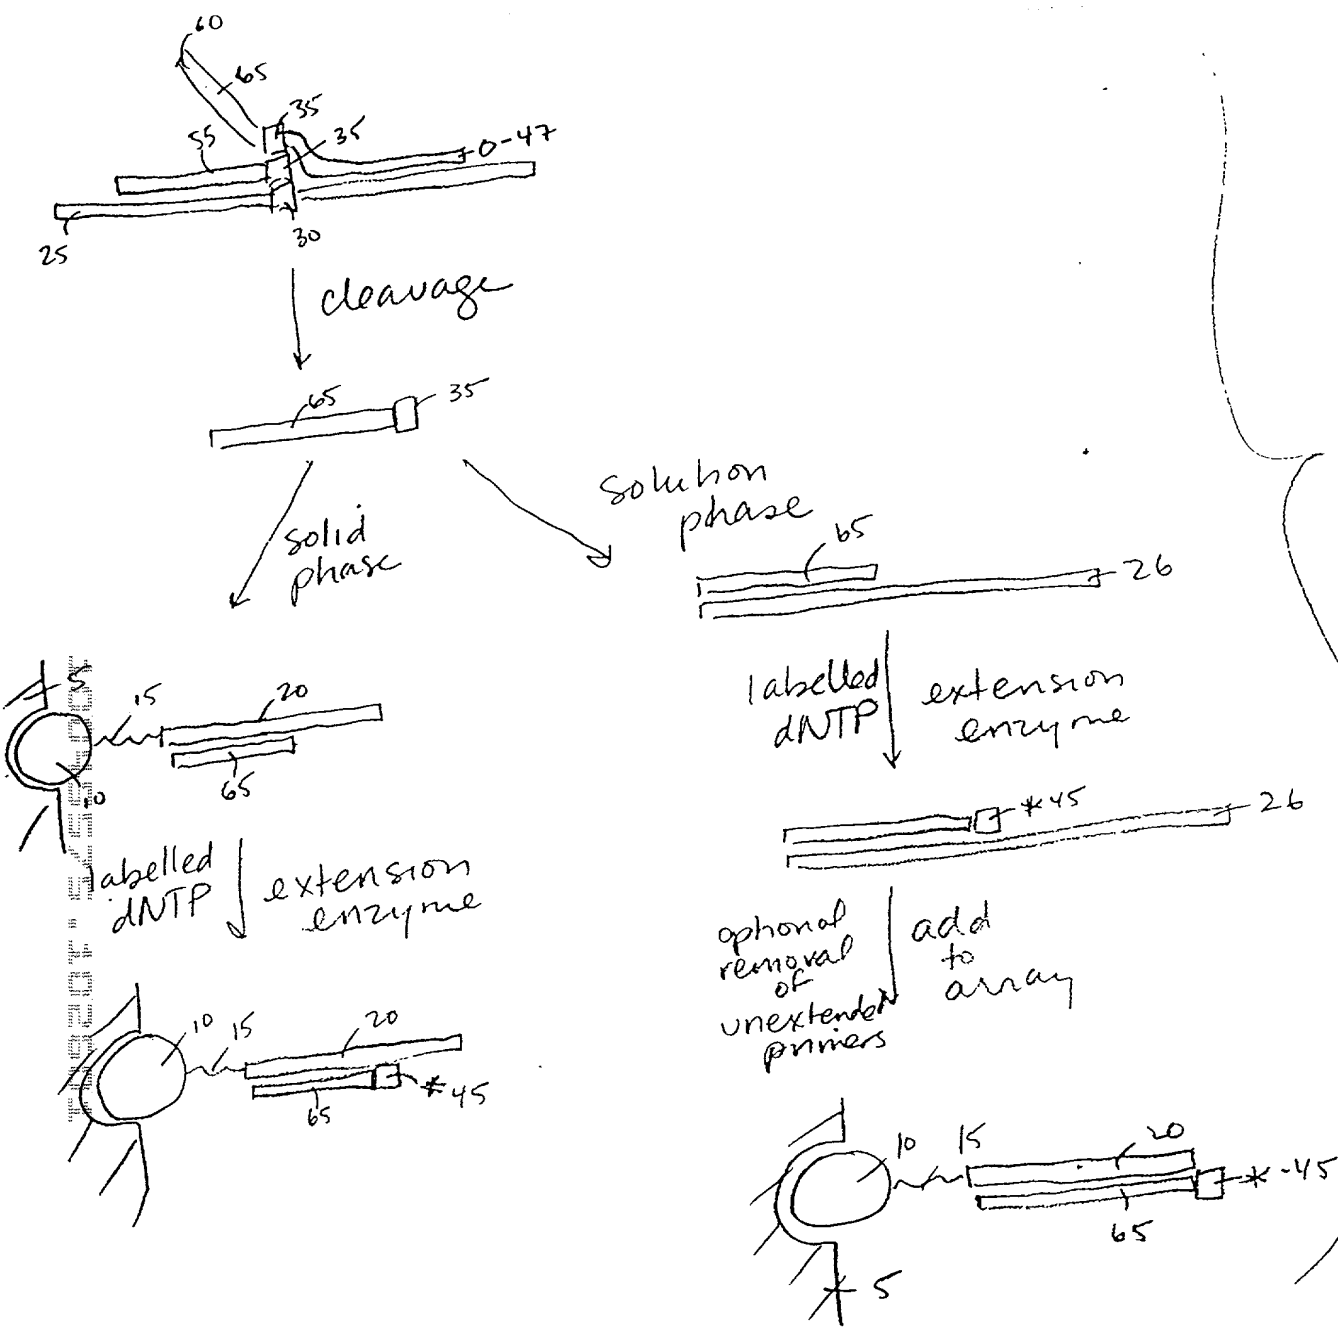 60
65
35
55
35
0-47
25
30
cleavage
65
35
solution
phase
solid
phase
65
26
5
15
20
10
65
labelled
dNTP
extension
enzyme
labelled
dNTP
extension
enzyme
*45
26
optional
removal
of
unextended
primers
add
to
array
10
15
20
65
*45
10
15
20
*-45
65
5